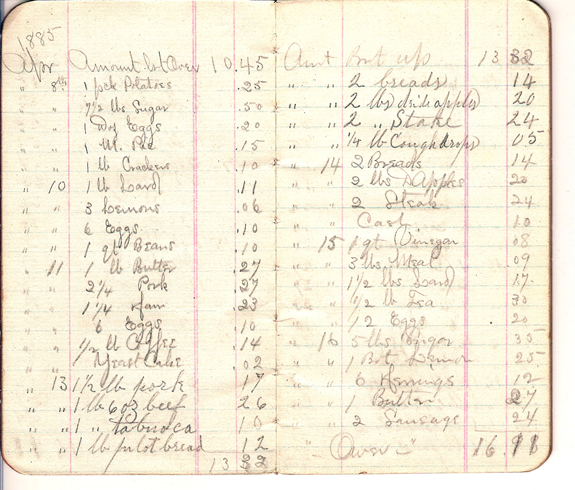 1885
Apr Amount bot Over 10.45
" 8th 1 peck Potatoes .25
" " 7½ lbs Sugar .50
" " 1 Doz Eggs .20
" " 1 Pie .15
" " 1 lb Crackers .10
" 10 1 lb Lard .11
" " 3 Lemons .06
" " 6 Eggs .10
" " 1 qt Beans .10
" 11 1 lb Butter .27
" " 2¼ Pork .27
" " 1¼ Ham .23
" " 6 Eggs .10
" " ½ lb Coffee .14
" " Yeast Cake .02
" " 13 1½ lb pork 17
" " 1 lb 6 oz beef 26
" " 1 " tabuoca 10
" " 1 lb pilot bread 12
13 32
Amt Brt up 13 32
" " 2 breads 14
" " 2 lbs dride apples 20
" " 2 " Stake 24
" " ¼ lb Cough drops 05
" 14 2 Breads 14
" " 2 lbs D Apples 20
" " 2 Steak 24
" " Cash 10
" 15 1 qt Vinegar 08
" " 3 lbs Meal 09
" " 1½ lbs Lard 17
" " ½ lb Tea 30
" " 12 Eggs 20
" 16 5 lbs Sugar 35
" " 1 Bot Lemon 25
" " 6 Herrings 12
" " 1 Butter 27
" " 2 Sausage 24
" Over " 16